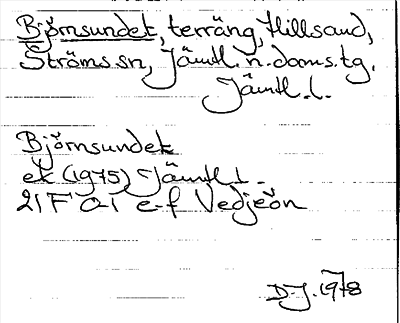 Björnsundet, terräng, Hillsand,
Ströms sn, Jämtl. n. doms. tg.
Jämtl. l.
Björnsundet
ek (1975) Jämtl l.
21 F 0-1 e-f Vedjeön
D-J. 1978